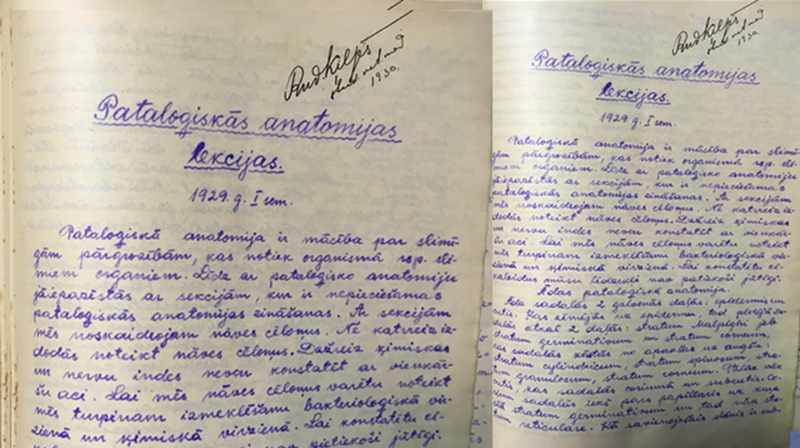 Rud Kalps
stud. med. ved.
1930.
Pataloģiskās anatomijas
lekcijas.
1929. g. I sem.
Pataloģiskā anatomija ir mācība par slimī-
gām pārgrozībām, kas notiek organismā resp. sli-
miem orgāniem. Līdz ar pataloģisko anatomiju
jāiepazīstās ar sekcijām, kur ir nepieciešamas
pataloģiskās anatomijas zināšanas. Ar sekcijām
mēs noskaidrojam nāves cēloņus. Ne katreiz iz-
dodās noteikt nāves cēloņus. Dažreiz ķimiskas
un nervu indes nevar konstatēt ar vienkār-
šu aci. Lai mēs nāves cēloņus varētu noteikt
mēs turpinam izmeklēšanu bakterioloģiskā vir-
zienā un ķimiskā virzienā. Lai konstatētu cē-
nav pietiekoši jātīgi.
Rud Kalps
1930.
Pataloģiskās anatomijas
lekcijas.
1929. g. I sem.
Pataloģiskā anatomija ir mācība par slimī-
gām pārgrozībām, kas notiek organismā resp. sli-
miem orgāniem. Līdz ar pataloģisko anatomiju
jāiepazīstās ar sekcijām, kur ir nepieciešamas
pataloģiskās anatomijas zināšanas. Ar sekcijām
mēs noskaidrojam nāves cēloņus. Ne katreiz iz-
dodās noteikt nāves cēloņus. Dažreiz ķimiskas
un nervu indes nevar konstatēt ar vienkār-
šu aci. Lai mēs nāves cēloņus varētu noteikt
mēs turpinam izmeklēšanu bakterioloģiskā vir-
zienā un ķimiskā virzienā. Lai konstatētu cē-
mūsu nav pietiekoši jātīgi.
Ādas pataloģiskā anatomija.
Āda sadalās 2 galvenās daļās: epidermis un
cutis. Kas zīmējās uz epidermu, tad
atkal 2 daļās: stratum Malpighi jeb
stratum germinativum un stratum corneum.
sadalās no apakšas uz augšu:
stratum cylindricum, stratum spinosum, stra-
tum granulosum, stratum corneum.
cutis, kas sadalās coriumā un subcutis. Co-
rium sadalās pars papillaris
stratum germinativum un tad stra-
tum reticulare.